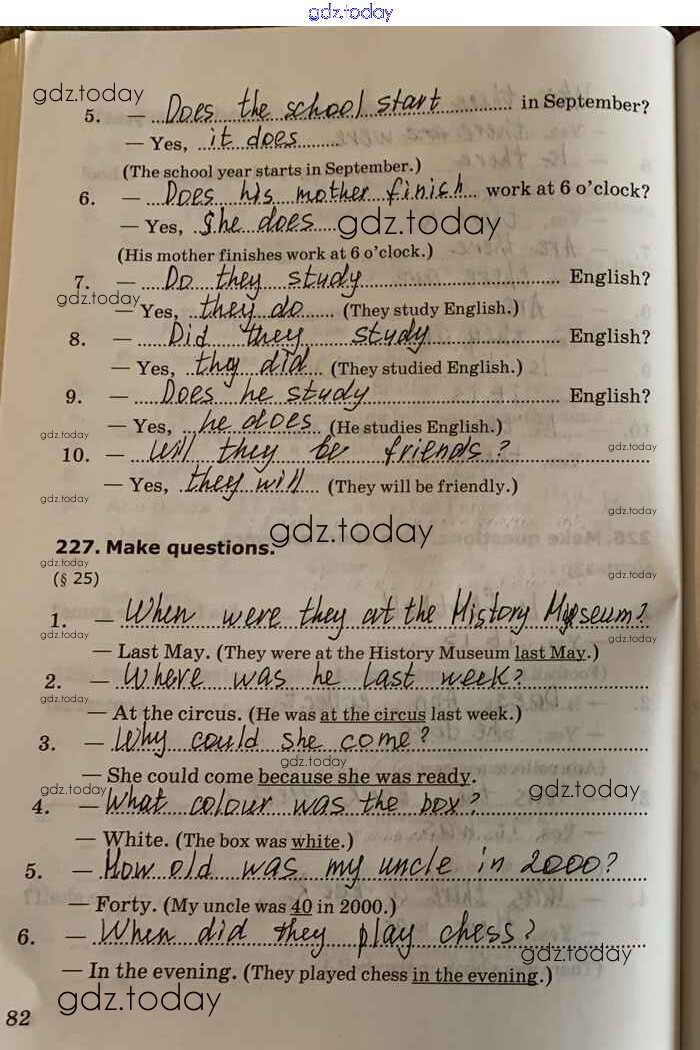 gdz.today
gdz.today
5. — Does the school start in September?
— Yes, it does
(The school year starts in September.)
6. — Does his mother finish work at 6 o'clock?
— Yes, she does gdz.today
(His mother finishes work at 6 o'clock.)
7. — Do they study English?
gdz.today
— Yes, they do (They study English.)
8. — Did they study English?
— Yes, they did (They studied English.)
9. — Does he study English?
gdz.today — Yes, he does (He studies English.)
gdz.today
10. — Will they be friends?
gdz.today — Yes, they will (They will be friendly.)
gdz.today
gdz.today
227. Make questions.
gdz.today
gdz.today
(§ 25)
1. — When were they at the History Museum?
gdz.today
gdz.today
— Last May. (They were at the History Museum last May.)
2. — Where was he last week?
gdz.today
— At the circus. (He was at the circus last week.)
3. — Why could she come?
gdz.today
— She could come because she was ready.
gdz.today
gdz.today
4. — What colour was the box?
— White. (The box was white.)
5. — How old was my uncle in 2000?
— Forty. (My uncle was 40 in 2000.)
6. — When did they play chess?
gdz.today
— In the evening. (They played chess in the evening.)
gdz.today
82